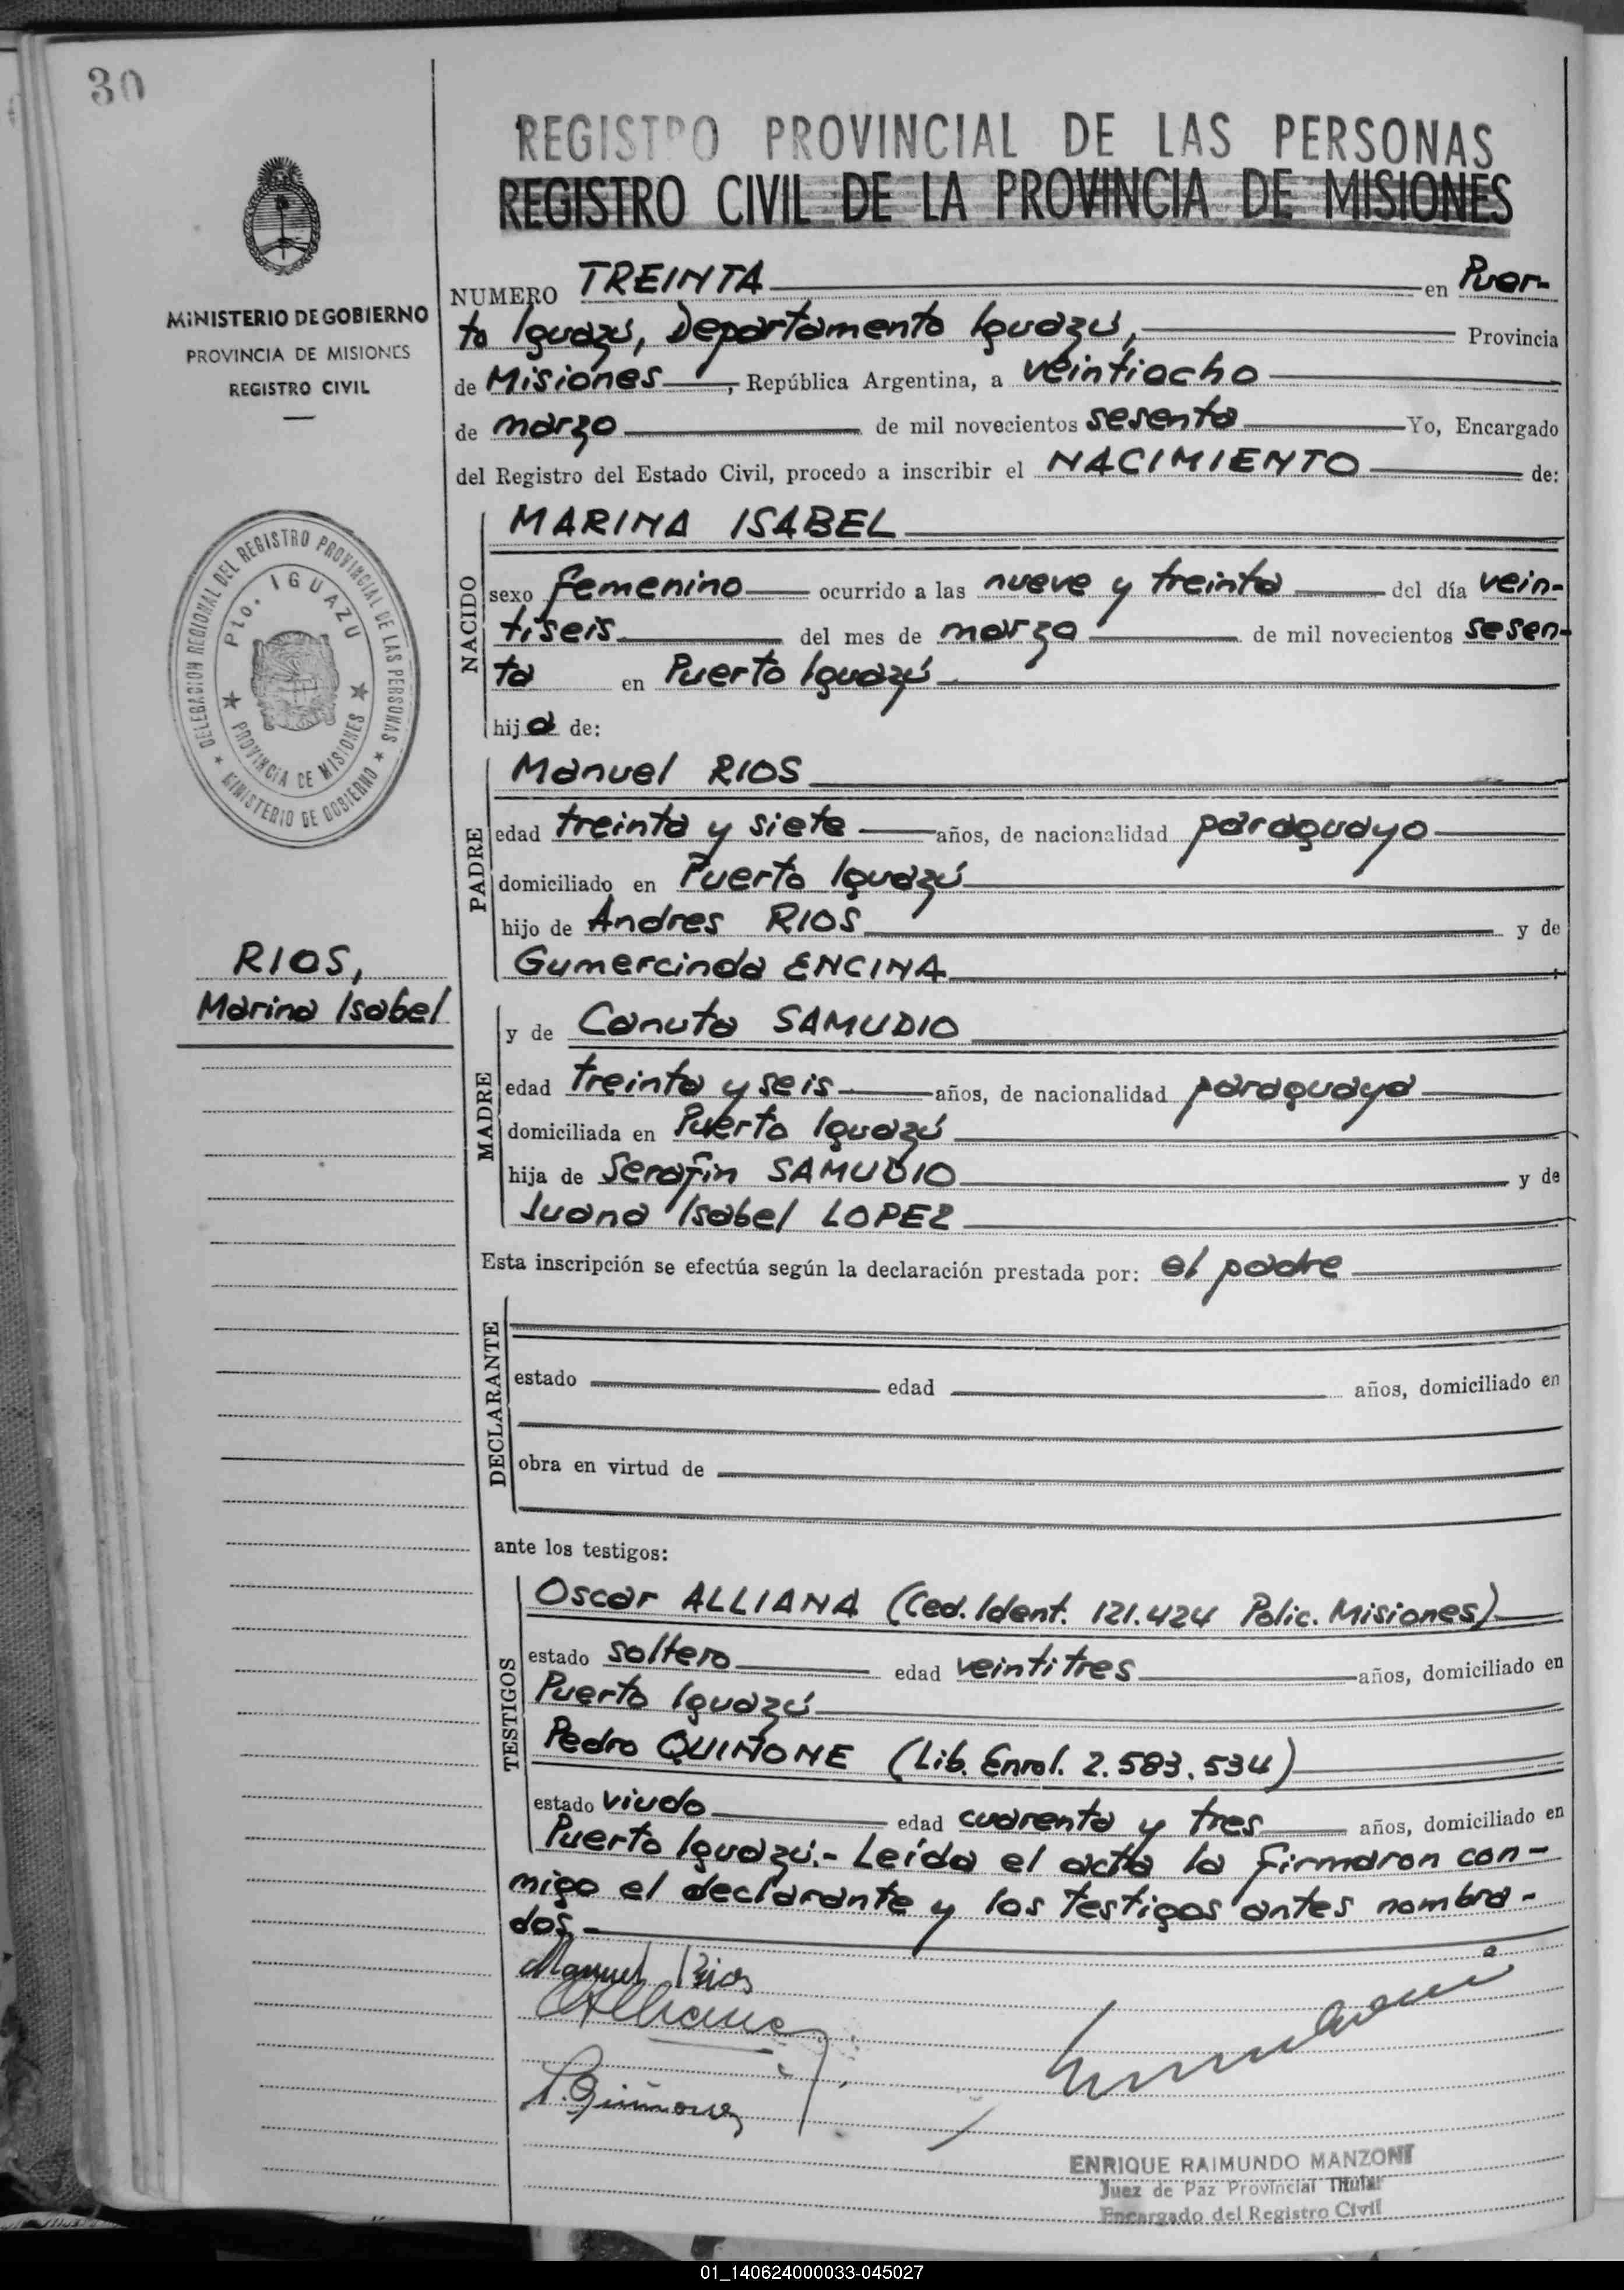 30
REGISTRO PROVINCIAL DE LAS PERSONAS
REGISTRO CIVIL DE LA PROVINCIA DE MISIONES
MINISTERIO DE GOBIERNO
PROVINCIA DE MISIONES
REGISTRO CIVIL
NUMERO TREINTA en Puer-
to Iguazú, Departamento Iguazú, Provincia
de Misiones, República Argentina, a veintiocho
de marzo de mil novecientos sesenta Yo, Encargado
del Registro del Estado Civil, procedo a inscribir el NACIMIENTO de:
DELEGACION REGIONAL DEL REGISTRO PROVINCIAL DE LAS PERSONAS
Pto. IGUAZU
PROVINCIA DE MISIONES
MINISTERIO DE GOBIERNO
NACIDO
MARINA ISABEL
sexo femenino ocurrido a las nueve y treinta del día vein-
tiseis del mes de marzo de mil novecientos sesen-
ta en Puerto Iguazú
hija de:
PADRE
Manuel RIOS
edad treinta y siete años, de nacionalidad paraguayo
domiciliado en Puerto Iguazú
hijo de Andres RIOS y de
Gumercinda ENCINA
RIOS,
Marina Isabel
MADRE
y de Canuta SAMUDIO
edad treinta y seis años, de nacionalidad paraguaya
domiciliada en Puerto Iguazú
hija de Serafin SAMUDIO y de
Juana Isabel LOPEZ
Esta inscripción se efectúa según la declaración prestada por: el padre
DECLARANTE
estado edad años, domiciliado en
obra en virtud de
ante los testigos:
TESTIGOS
Oscar ALLIANA (Ced. Ident. 121.424 Polic. Misiones)
estado soltero edad veintitres años, domiciliado en
Puerto Iguazú
Pedro QUIÑONE (Lib. Enrol. 2.583.534)
estado viudo edad cuarenta y tres años, domiciliado en
Puerto Iguazú.- Leída el acta la firmaron con-
migo el declarante y los testigos antes nombra-
dos.
Manuel Rios
P. Quiñonez
ENRIQUE RAIMUNDO MANZONI
Juez de Paz Provincial Titular
Encargado del Registro Civil
01_140624000033-045027